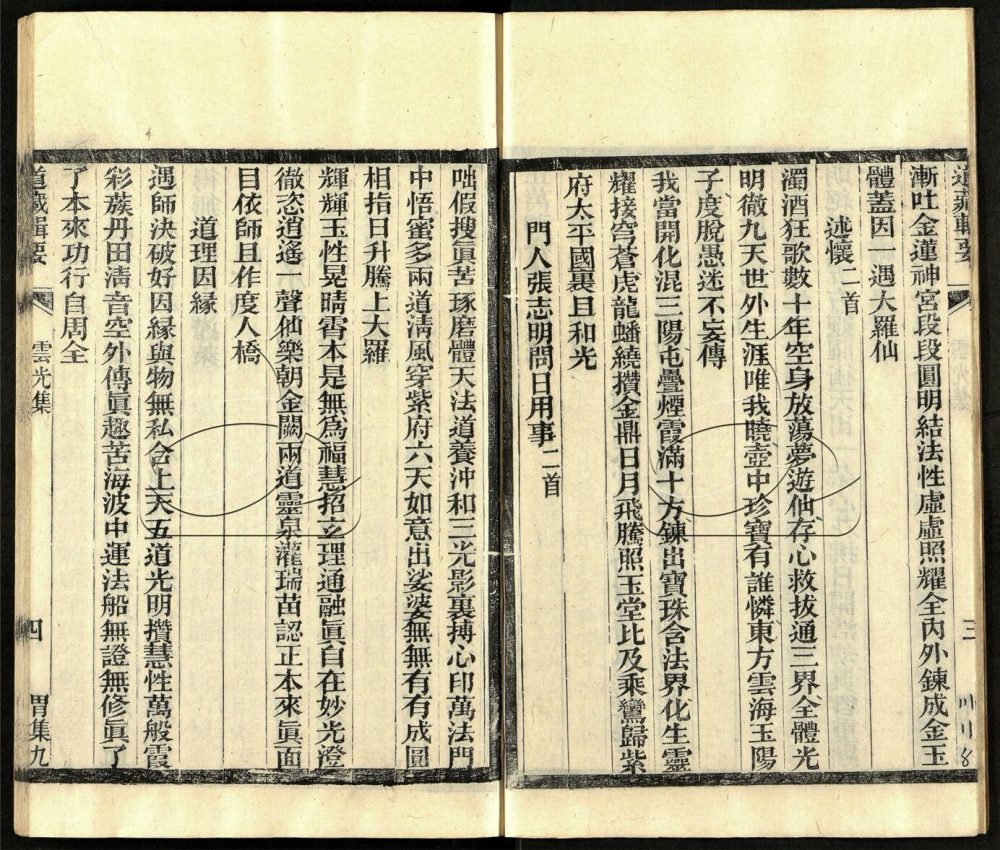 道藏輯要
三
漸吐金蓮神宮段段圓明結法性虛虛照耀全內外鍊成金玉
體蓋因一遇大羅仙
述懷二首
濁酒狂歌數十年空身放蕩夢遊仙存心救拔通三界全體光
明徹九天世外生涯唯我曉壺中珍寶有誰憐東方雲海玉陽
子度脫愚迷不妄傳
我當開化混三陽屯疊煙霞滿十方鍊出寶珠含法界化生靈
耀接穹蒼虎龍蟠繞攢金鼎日月飛騰照玉堂比及乘鸞歸紫
府太平國裏且和光
門人張志明問日用事二首
咄假搜眞苦琢磨體天法道養沖和三光影裏摶心印萬法門
中悟蜜多兩道清風穿紫府六天如意出娑婆無無有有成圓
相指日升騰上大羅
輝輝玉性晃晴霄本是無為福慧招玄理通融眞自在妙光澄
徹恣逍遙一聲仙樂朝金闕兩道靈泉灌瑞苗認正本來眞面
目依師且作度人橋
道理因緣
遇師決破好因緣與物無私合上天五道光明攢慧性萬般霞
彩簇丹田清音空外傳眞趣苦海波中運法船無證無修眞了
了本來功行自周全
道藏輯要 雲光集 四 胃集九